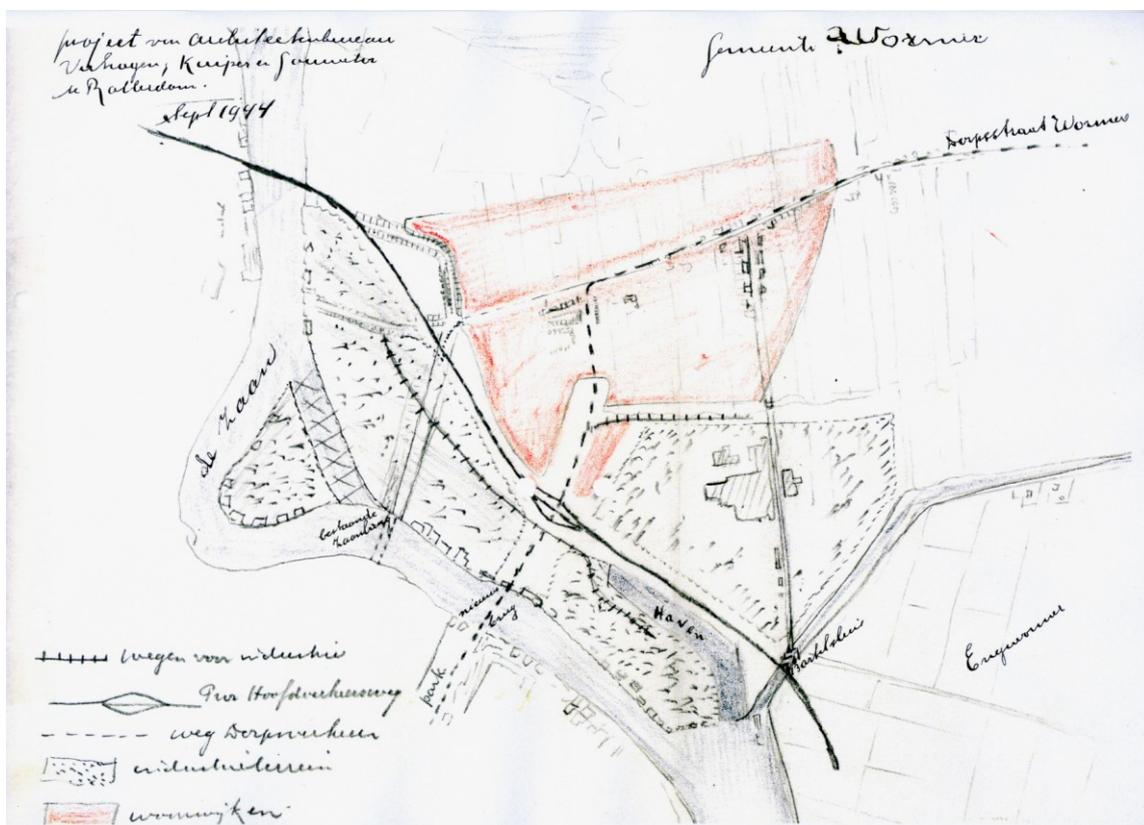 project van Architectenbureau
Verhagen, Kuiper en Gouwetor
te Rotterdam.
Sept 1944
Gemeente Wormer
Dorpsstraat Wormer
de Zaan
bestaande
Zaanbrug
nieuwe
brug
Haven
Bartelsluis
Engewormer
park
wegen voor industrie
Prov Hoofdverkeersweg
weg Dorpsverkeer
industrieterrein
woonwijken